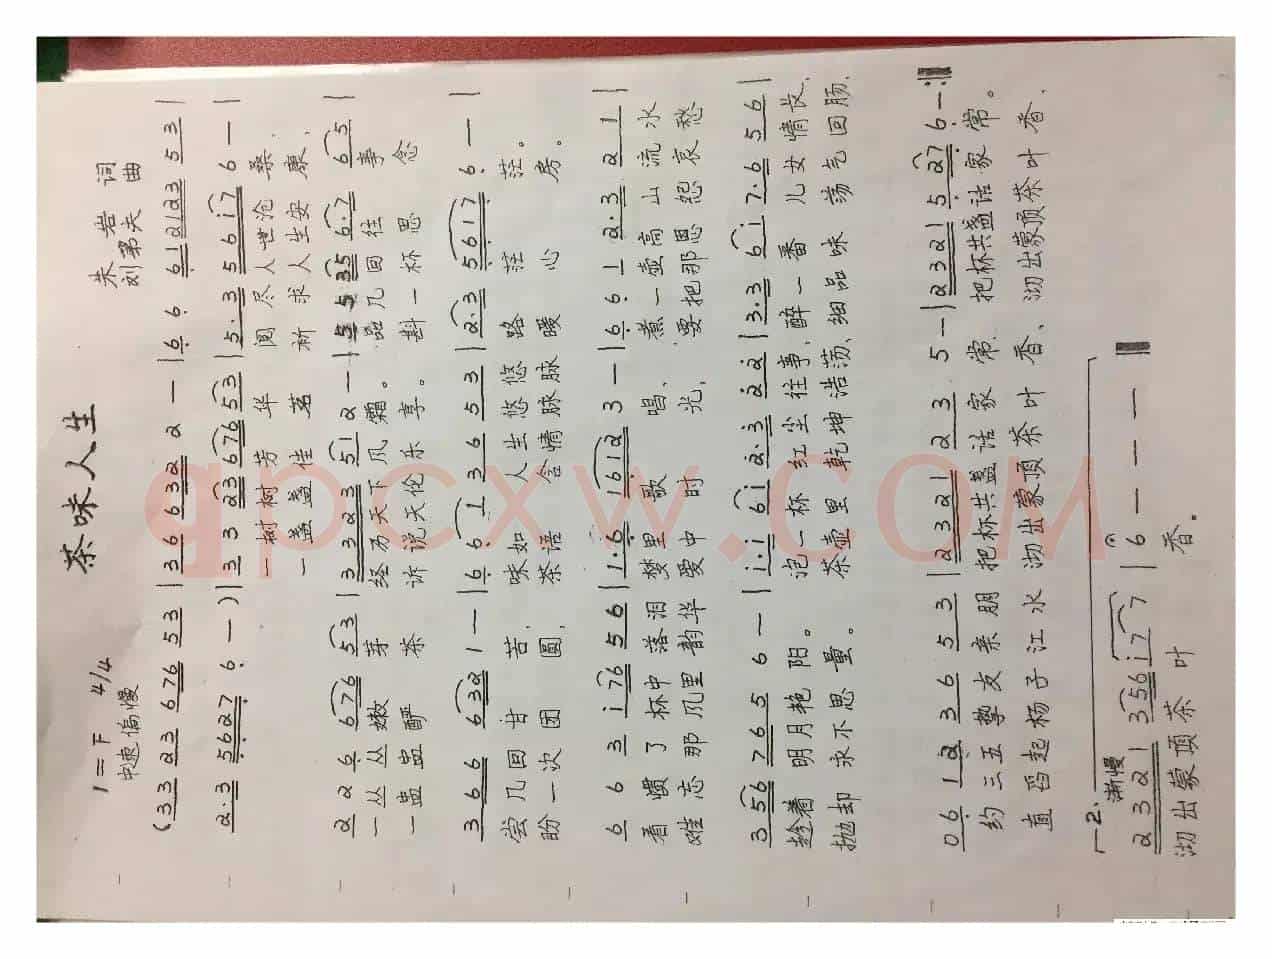 茶味人生
1=F 4/4
中速偏慢
朱岩 词
刘第夫 曲
(3 3 2 3 6 7 6 5 3 | 3 6 6 3 2 2 — | 6 6 6 1 2 1 2 3 5 3 |
2·3 5 6 2 7 6 — ) | 3 3 2 3 6 7 6 5 3 | 5·3 5 6 i 7 6 — |
一树树芳华 阅尽人世沧桑,
一盏盏佳茗 祈求人生安康,
2 2 6 6 7 6 5 3 | 3 3 2 2 3 5 1 2 — | 5 5 3 5 6·7 6 5 |
一丛丛嫩芽 经历天下风霜。 品几回往事
一盅盅酽茶 诉说天伦乐享。 斟一杯思念
3 6 6 6 3 2 1 — | 6 6 1 3 6 5 3 | 2·3 5 6 1 7 6 — |
尝几回甘苦, 味如人生悠悠路茫茫。
盼一次团圆, 茶语含情脉脉暖心房。
6 6 3 i 7 6 5 6 | 1·6 1 6 1 2 3 — | 6 6 1 2·3 2 1 |
看惯了杯中落泪梦里歌唱, 煮一壶高山流水
难忘那风里韵华爱中时光, 要把那恩怨哀愁
3 5 6 7 6 5 6 — | i·i 6 i 2·3 2 2 | 3·3 6 i 7·6 5 6 |
趁着明月艳阳。 泡一杯红尘往事,醉一番儿女情长,
抛却永不思量。 茶壶里乾坤浩荡、细品味荡气回肠,
0 6 1 2 3 6 5 3 | 2 3 2 1 2 3 5 — | 2 3 2 1 5 2 7 6 — :‖
约三五挚友亲朋把杯共盏话家常 把杯共盏话家常。
直舀起杨子江水沏出蒙顶茶叶香、沏出蒙顶茶叶香,
2. 渐慢
2 3 2 1 3 5 6 i 7 7 | 6 — — — ‖
沏出蒙顶茶叶香。
qpcxw.com